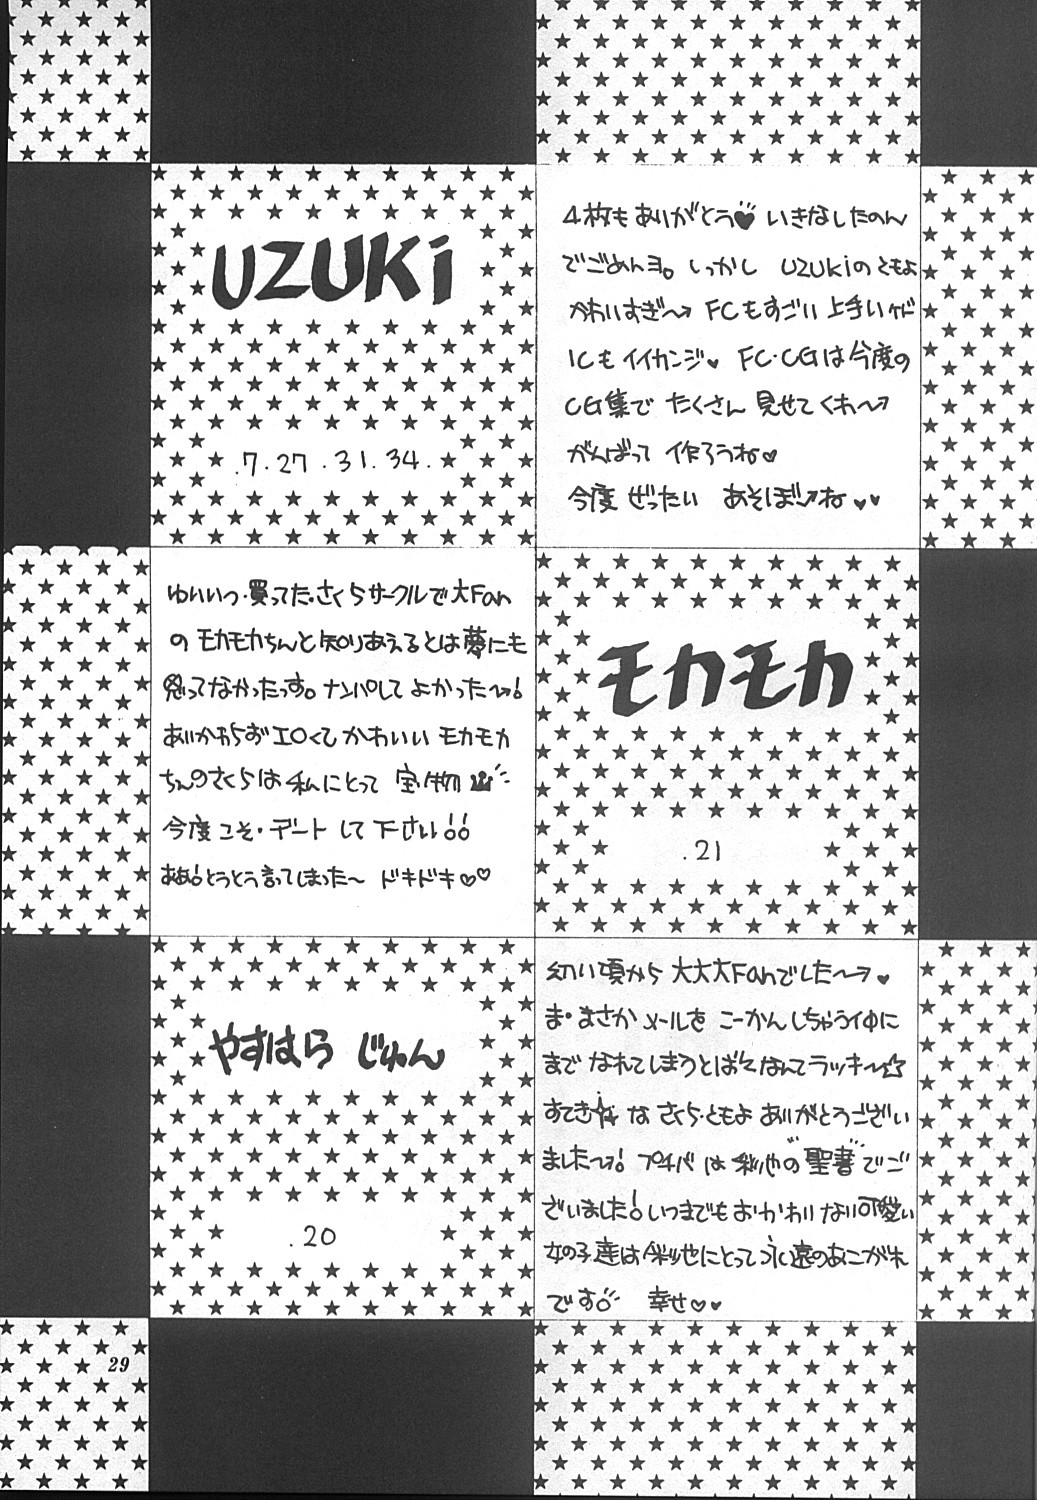 UZUKi
.7.27.31.34.
4枚もありがとう♥ いきなしたのん
でごめんヨ。しっかし UZUKiのともよ
かわいすぎ〜 FCもすごい上手いケド
ICもイイカンジ♥ FC・CGは今度の
CG集で たくさん 見せてくれ〜
がんばって 作ろうね♥
今度 ぜったい あそぼーね ♥♥
ゆいいつ・買ってた・さくらサークルで大Fan
の モカモカちんと知りあえるとは夢にも
思ってなかったっす。ナンパして よかった〜!
あいかわらずエロくてかわいい モカモカ
ちんのさくらは 私にとって 宝物
今度こそ・デート して 下さい!!
ああ!とうとう言ってしまった〜 ドキドキ♡♡
モカモカ
.21
やすはら じゅん
.20
幼い頃から 大大大Fanでした〜♥
ま・まさか メールを こーかんしちゃうイ中に
まで なれてしまうとは なんてラッキ〜☆
すてき な さくら・ともよ ありがとうござい
ました〜! プチパは 彩也の"聖書"でご
ざいました!いつまでもおかわりない可愛い
女の子達は彩也にとって永遠のあこがれ
です 幸せ♡♥
29